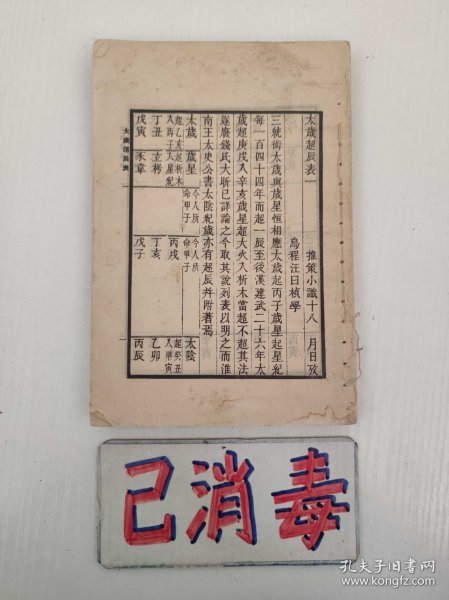 太歲超辰表一
推策小識十八
月日攷
烏程汪日楨學
三統術太歲與歲星恒相應太歲起丙子歲星起星紀
每一百四十四年而超一辰至後漢建武二十六年太
歲超庚戌入辛亥歲星超大火入析木當超不超其法
遂廢錢氏大昕已詳論之今取其說列表以明之而淮
南王太史公書太陰紀歲亦有超辰并附著焉
太歲
歲星
今人所
命甲子
今人所
命甲子
太陰
超乙亥
入丙子
超析木
入星紀
丙戌
超癸丑
入甲寅
丁丑
玄枵
丁亥
乙卯
戊寅
豕韋
戊子
丙辰
太歲超辰表
一
已消毒
孔夫子旧书网
www.kongfz.com